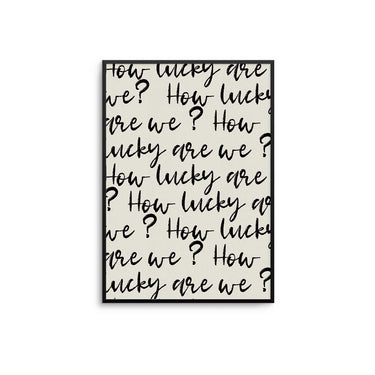 How lucky are
we? How lucky
are we? How
lucky are we?
How lucky are
? How lucky ar
we? How lucky
are we? How
lucky are we?